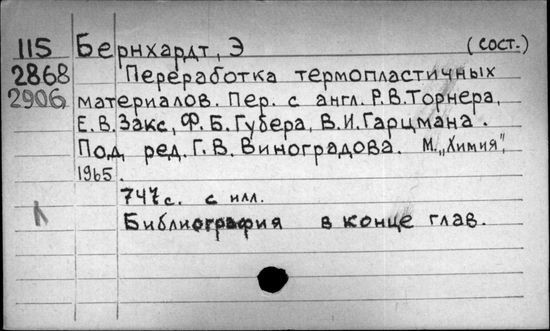 115 Бернхардт, Э (сост.)
2868 Переработка термопластичных
2906 материалов. Пер. с англ. Р.В.Торнера,
Е.В.Закс, Ф.Б.Губера, В.И.Гарцмана.
Под ред. Г.В.Виноградова. М. „Химия",
1965.
747с. с илл.
Библиография в конце глав.